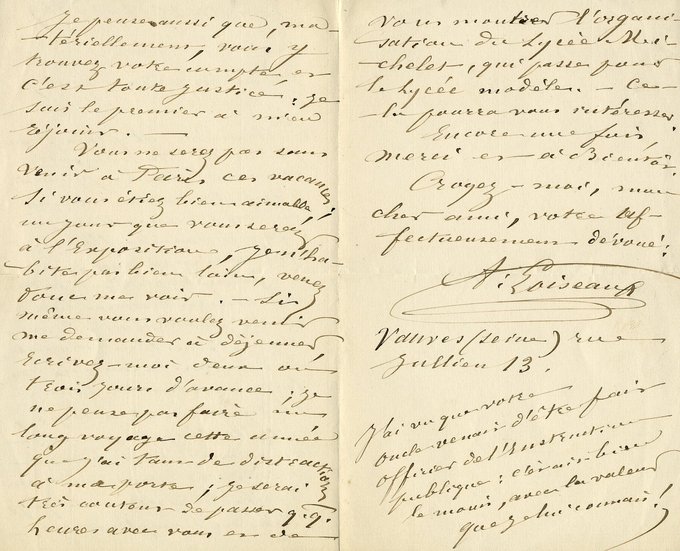 Je pense aussi que, ma-
tériellement, vous y
trouvez votre compte, et
c'est toute justice : je
suis le premier à m'en
réjouir. —
Vous ne serez pas sans
venir à Paris ces vacances !
Si vous étiez bien aimable,
un jour que vous serez
à l'Exposition, je n'ha-
bite pas bien loin, venez
donc me voir. — Si
même vous voulez venir
me demander à déjeuner,
Ecrivez-moi deux ou
trois jours d'avance ; je
ne pense pas faire un
long voyage cette année
que j'ai tant de distractions
à ma porte ; je serai
très content de passer q.q.
heures avec vous et de
vous montrer l'organi-
sation du Lycée Mi-
chelet, qui passe pour
le Lycée modèle. — Ce-
la pourra vous intéresser.
Encore une fois
merci et à Bientôt.
Croyez-moi, mon
cher ami, votre af-
fectueusement dévoué :
A. Loiseau
Vanves (Seine) rue
Jullien 13.
J'ai vu que votre
oncle venait d'être fait
officier de l'Instruction
publique : c'était bien
le moins, avec la valeur
que je lui connais !